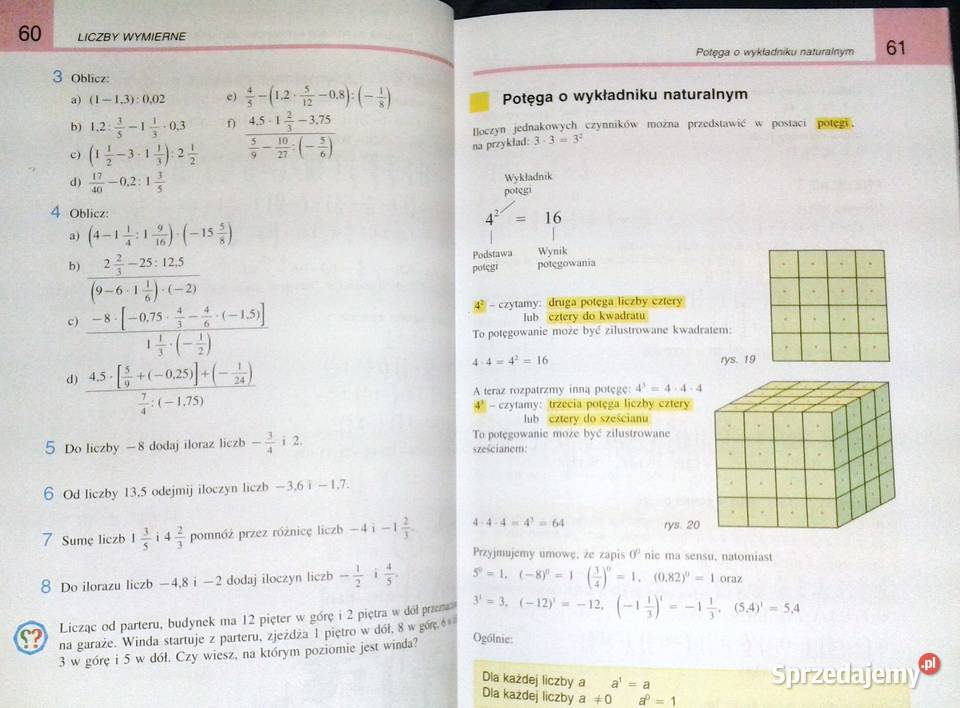 60
LICZBY WYMIERNE
3 Oblicz:
a) (1 − 1,3) : 0,02
b) 1,2 : 3/5 − 1 1/3 · 0,3
c) (1 1/2 − 3 · 1 1/3) : 2 1/2
d) 17/40 − 0,2 : 1 3/5
e) 4/5 − (1,2 · 5/12 − 0,8) : (− 1/8)
f) (4,5 · 1 2/3 − 3,75) / (5/9 − 10/27 : (− 5/6))
4 Oblicz:
a) (4 − 1 1/4 : 1 9/16) · (−15 5/8)
b) (2 2/3 − 25 : 12,5) / ((9 − 6 · 1 1/6) · (−2))
c) (−8 · [−0,75 · 4/3 − 4/6 · (−1,5)]) / (1 1/3 · (− 1/2))
d) (4,5 · [5/9 + (−0,25)] + (− 1/24)) / (7/4 : (−1,75))
5 Do liczby −8 dodaj iloraz liczb − 3/4 i 2.
6 Od liczby 13,5 odejmij iloczyn liczb −3,6 i −1,7.
7 Sumę liczb 1 3/5 i 4 2/3 pomnóż przez różnicę liczb −4 i −1 2/3.
8 Do ilorazu liczb −4,8 i −2 dodaj iloczyn liczb − 1/2 i 4/5.
??
Licząc od parteru, budynek ma 12 pięter w górę i 2 piętra w dół
na garaże. Winda startuje z parteru, zjeżdża 1 piętro w dół, 8 w górę, 6 w
3 w górę i 5 w dół. Czy wiesz, na którym poziomie jest winda?
Potęga o wykładniku naturalnym
61
Potęga o wykładniku naturalnym
Iloczyn jednakowych czynników można przedstawić w postaci potęgi,
na przykład: 3 · 3 = 3²
Wykładnik
potęgi
4² = 16
Podstawa
potęgi
Wynik
potęgowania
4² – czytamy: druga potęga liczby cztery
lub cztery do kwadratu
To potęgowanie może być zilustrowane kwadratem:
4 · 4 = 4² = 16
rys. 19
A teraz rozpatrzmy inną potęgę: 4³ = 4 · 4 · 4
4³ – czytamy: trzecia potęga liczby cztery
lub cztery do sześcianu
To potęgowanie może być zilustrowane
sześcianem:
4 · 4 · 4 = 4³ = 64
rys. 20
Przyjmujemy umowę, że zapis 0⁰ nie ma sensu, natomiast
5⁰ = 1, (−8)⁰ = 1 (3/4)⁰ = 1, (0,82)⁰ = 1 oraz
3¹ = 3, (−12)¹ = −12, (−1 1/3)¹ = −1 1/3, (5,4)¹ = 5,4
Ogólnie:
Dla każdej liczby a a¹ = a
Dla każdej liczby a ≠ 0 a⁰ = 1
Sprzedajemy.pl